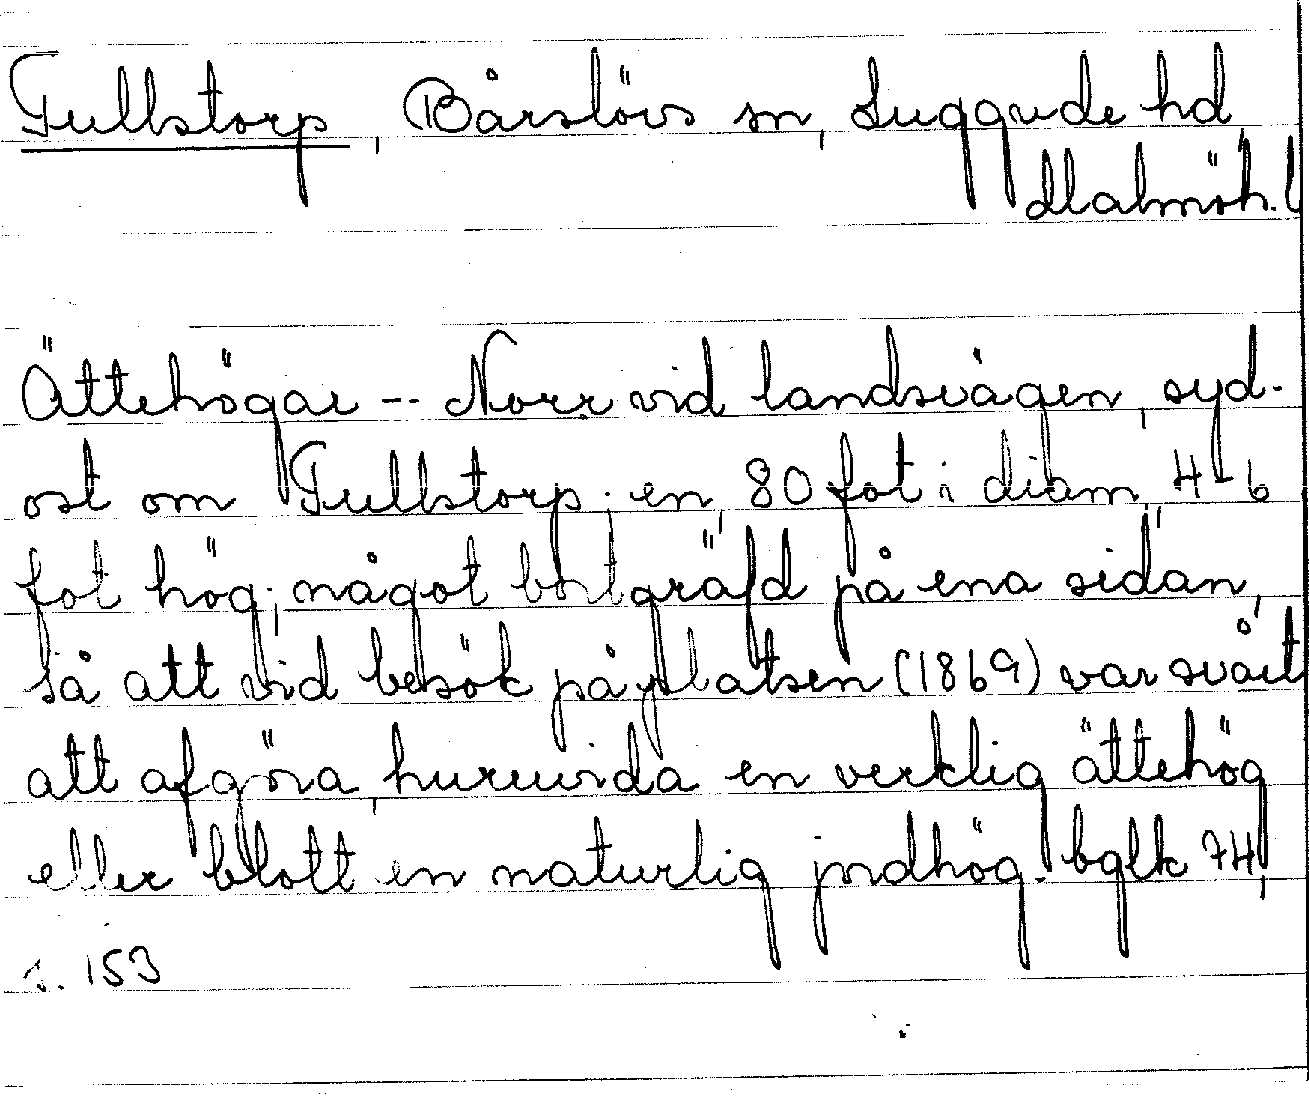 Fullstorp, Bårslövs sn, Luggude hd
Malmöh. l
Ättehögar -- Norr vid landsvägen, syd-
ost om Fullstorp: en, 80 fot i diam, 4-6
fot hög; något bortgräfd på ena sidan,
så att vid besök på platsen (1869) var svårt
att afgöra, huruvida en verklig ättehög
eller blott en naturlig jordhög. bglk 74,
s. 153